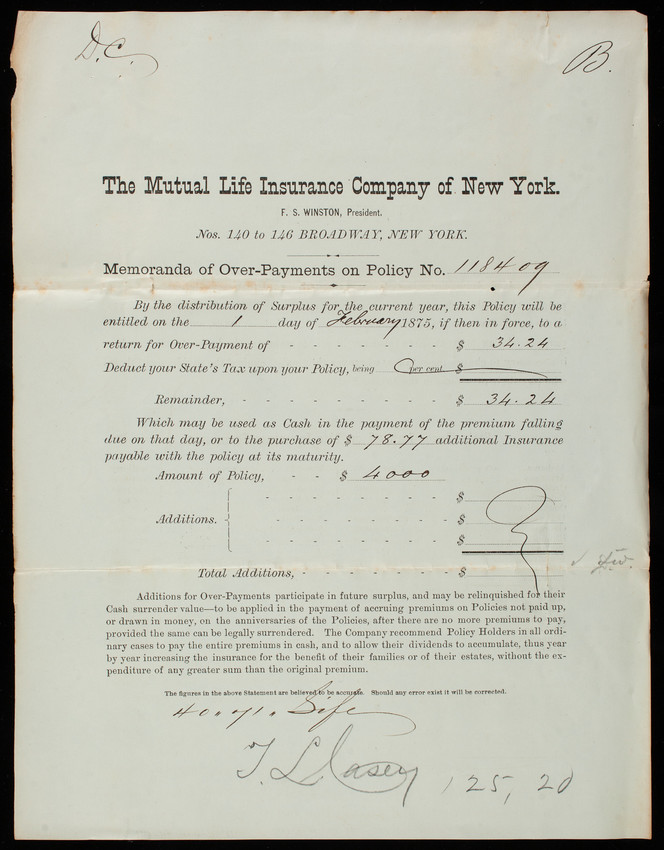 D.C.
B.
The Mutual Life Insurance Company of New York.
F. S. WINSTON, President.
Nos. 140 to 146 BROADWAY, NEW YORK.
Memoranda of Over-Payments on Policy No. 118409
By the distribution of Surplus for the current year, this Policy will be
entitled on the 1 day of February 1875, if then in force, to a
return for Over-Payment of - - - - - - - - $ 34.24
Deduct your State's Tax upon your Policy, being per cent $
Remainder, - - - - - - - - - $ 34.24
Which may be used as Cash in the payment of the premium falling
due on that day, or to the purchase of $ 78.77 additional Insurance
payable with the policy at its maturity.
Amount of Policy, - - $ 4000
- - - - - - - $
Additions. - - - - - - - $
- - - - - - - $
Total Additions, - - - - - - - $
Div.
Additions for Over-Payments participate in future surplus, and may be relinquished for their
Cash surrender value—to be applied in the payment of accruing premiums on Policies not paid up,
or drawn in money, on the anniversaries of the Policies, after there are no more premiums to pay,
provided the same can be legally surrendered. The Company recommend Policy Holders in all ordi-
nary cases to pay the entire premiums in cash, and to allow their dividends to accumulate, thus year
by year increasing the insurance for the benefit of their families or of their estates, without the ex-
penditure of any greater sum than the original premium.
The figures in the above Statement are believed to be accurate. Should any error exist it will be corrected.
40 " 71 " Life
T. L. Casey 125, 20